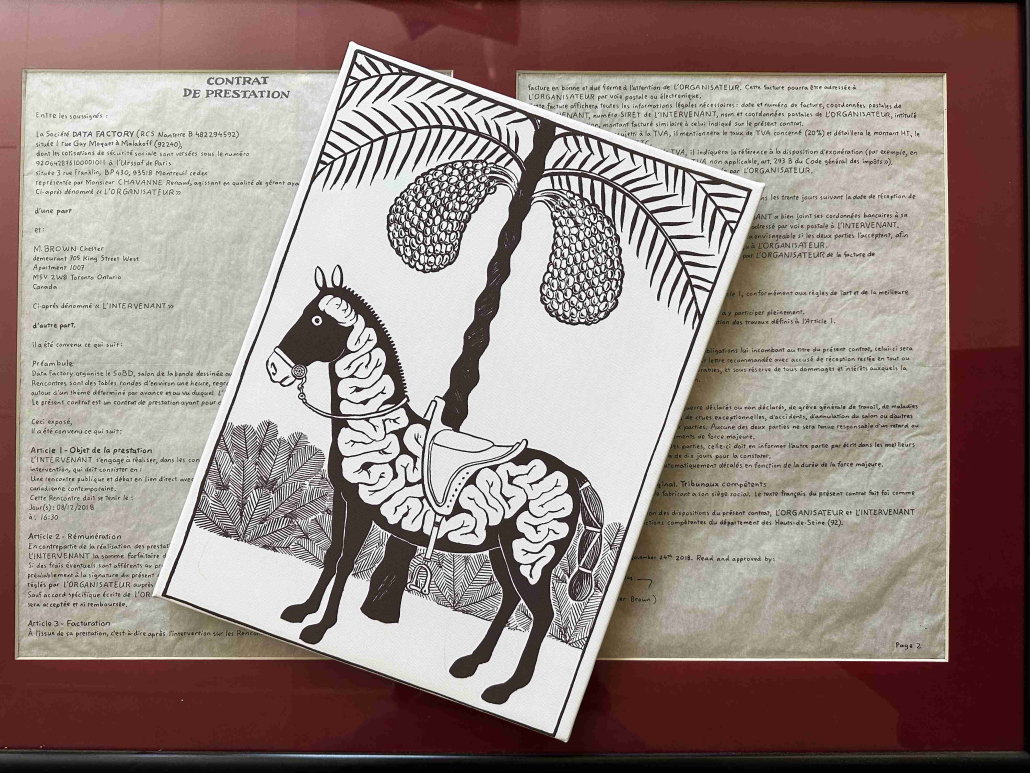 CONTRAT
DE PRESTATION
Entre les soussignés :
La Société DATA FACTORY (RCS Nanterre B 482294592)
située 1 rue Guy Moquet à Malakoff (92240),
dont les cotisations de sécurité sociale sont versées sous le numéro
à l'Urssaf de Paris
située 3 rue Franklin, BP 430, 93518 Montreuil cedex
représentée par Monsieur CHAVANNE Renaud, agissant en qualité de gérant
Ci-après dénommé « L'ORGANISATEUR »
d'une part
et :
M. BROWN Chester
demeurant 705 King Street West
Apartment 1007
M5V 2W8 Toronto Ontario
Canada
Ci-après dénommé « L'INTERVENANT »
d'autre part,
il a été convenu ce qui suit :
Préambule
Data Factory organise le SoBD, salon de la bande dessinée au
Rencontres sont des tables rondes d'environ une heure,
autour d'un thème déterminé par avance et au vu duquel
Le présent contrat est un contrat de prestation ayant pour
Ceci exposé,
Il a été convenu ce qui suit :
Article 1 - Objet de la prestation
L'INTERVENANT s'engage à réaliser, dans les
intervention, qui doit consister en :
Une rencontre publique et débat en lien direct avec
canadienne contemporaine.
Cette Rencontre doit se tenir le :
Jour(s) : 08/12/2018
à : 16:30
Article 2 - Rémunération
En contrepartie de la réalisation des
L'INTERVENANT la somme forfaitaire
Si des frais éventuels sont afférents au
préalablement à la signature du présent
réglés par L'ORGANISATEUR auprès
Sauf accord spécifique écrite de L'OR
sera acceptée et ni remboursée.
Article 3 - Facturation
À l'issue de sa prestation, c'est-à-dire après l'intervention sur les
facture en bonne et due forme à l'attention de L'ORGANISATEUR. Cette facture pourra être adressée à
L'ORGANISATEUR par voie postale ou électronique.
facture affichera toutes les informations légales nécessaires : date et numéro de facture, coordonnées postales de
numéro SIRET de L'INTERVENANT, nom et coordonnées postales de L'ORGANISATEUR, intitulé
montant facturé similaire à celui indiqué sur le présent contrat.
à la TVA, il mentionnera le taux de TVA concerné (20%) et détaillera le montant HT, le
TVA, il indiquera la référence à la disposition d'exonération (par exemple, en
non applicable, art. 293 B du Code général des impôts).
par L'ORGANISATEUR.
les trente jours suivant la date de réception de
a bien joint ses cordonnées bancaires à sa
adressé par voie postale à L'INTERVENANT.
envisageable si les deux parties l'acceptent, afin
à L'ORGANISATEUR.
par L'ORGANISATEUR de la facture de
1, conformément aux règles de l'art et de la meilleure
y participer pleinement.
des travaux définis à l'Article 1.
obligations lui incombant au titre du présent contrat, celui-ci sera
lettre recommandée avec accusé de réception restée en tout ou
et sous réserve de tous dommages et intérêts auxquels la
déclarés ou non déclarés, de grève générale de travail, de maladies
de crues exceptionnelles, d'accidents, d'annulation du salon ou d'autres
parties. Aucune des deux parties ne sera tenue responsable d'un retard ou
de force majeure.
parties, celle-ci doit en informer l'autre partie par écrit dans les meilleurs
de dix jours pour la constater.
automatiquement décalés en fonction de la durée de la force majeure.
Tribunaux compétents
a son siège social. Le texte français du présent contrat fait foi comme
des dispositions du présent contrat, L'ORGANISATEUR et L'INTERVENANT
compétentes du département des Hauts-de-Seine (92).
24th 2018. Read and approved by:
Brown)
Page 2